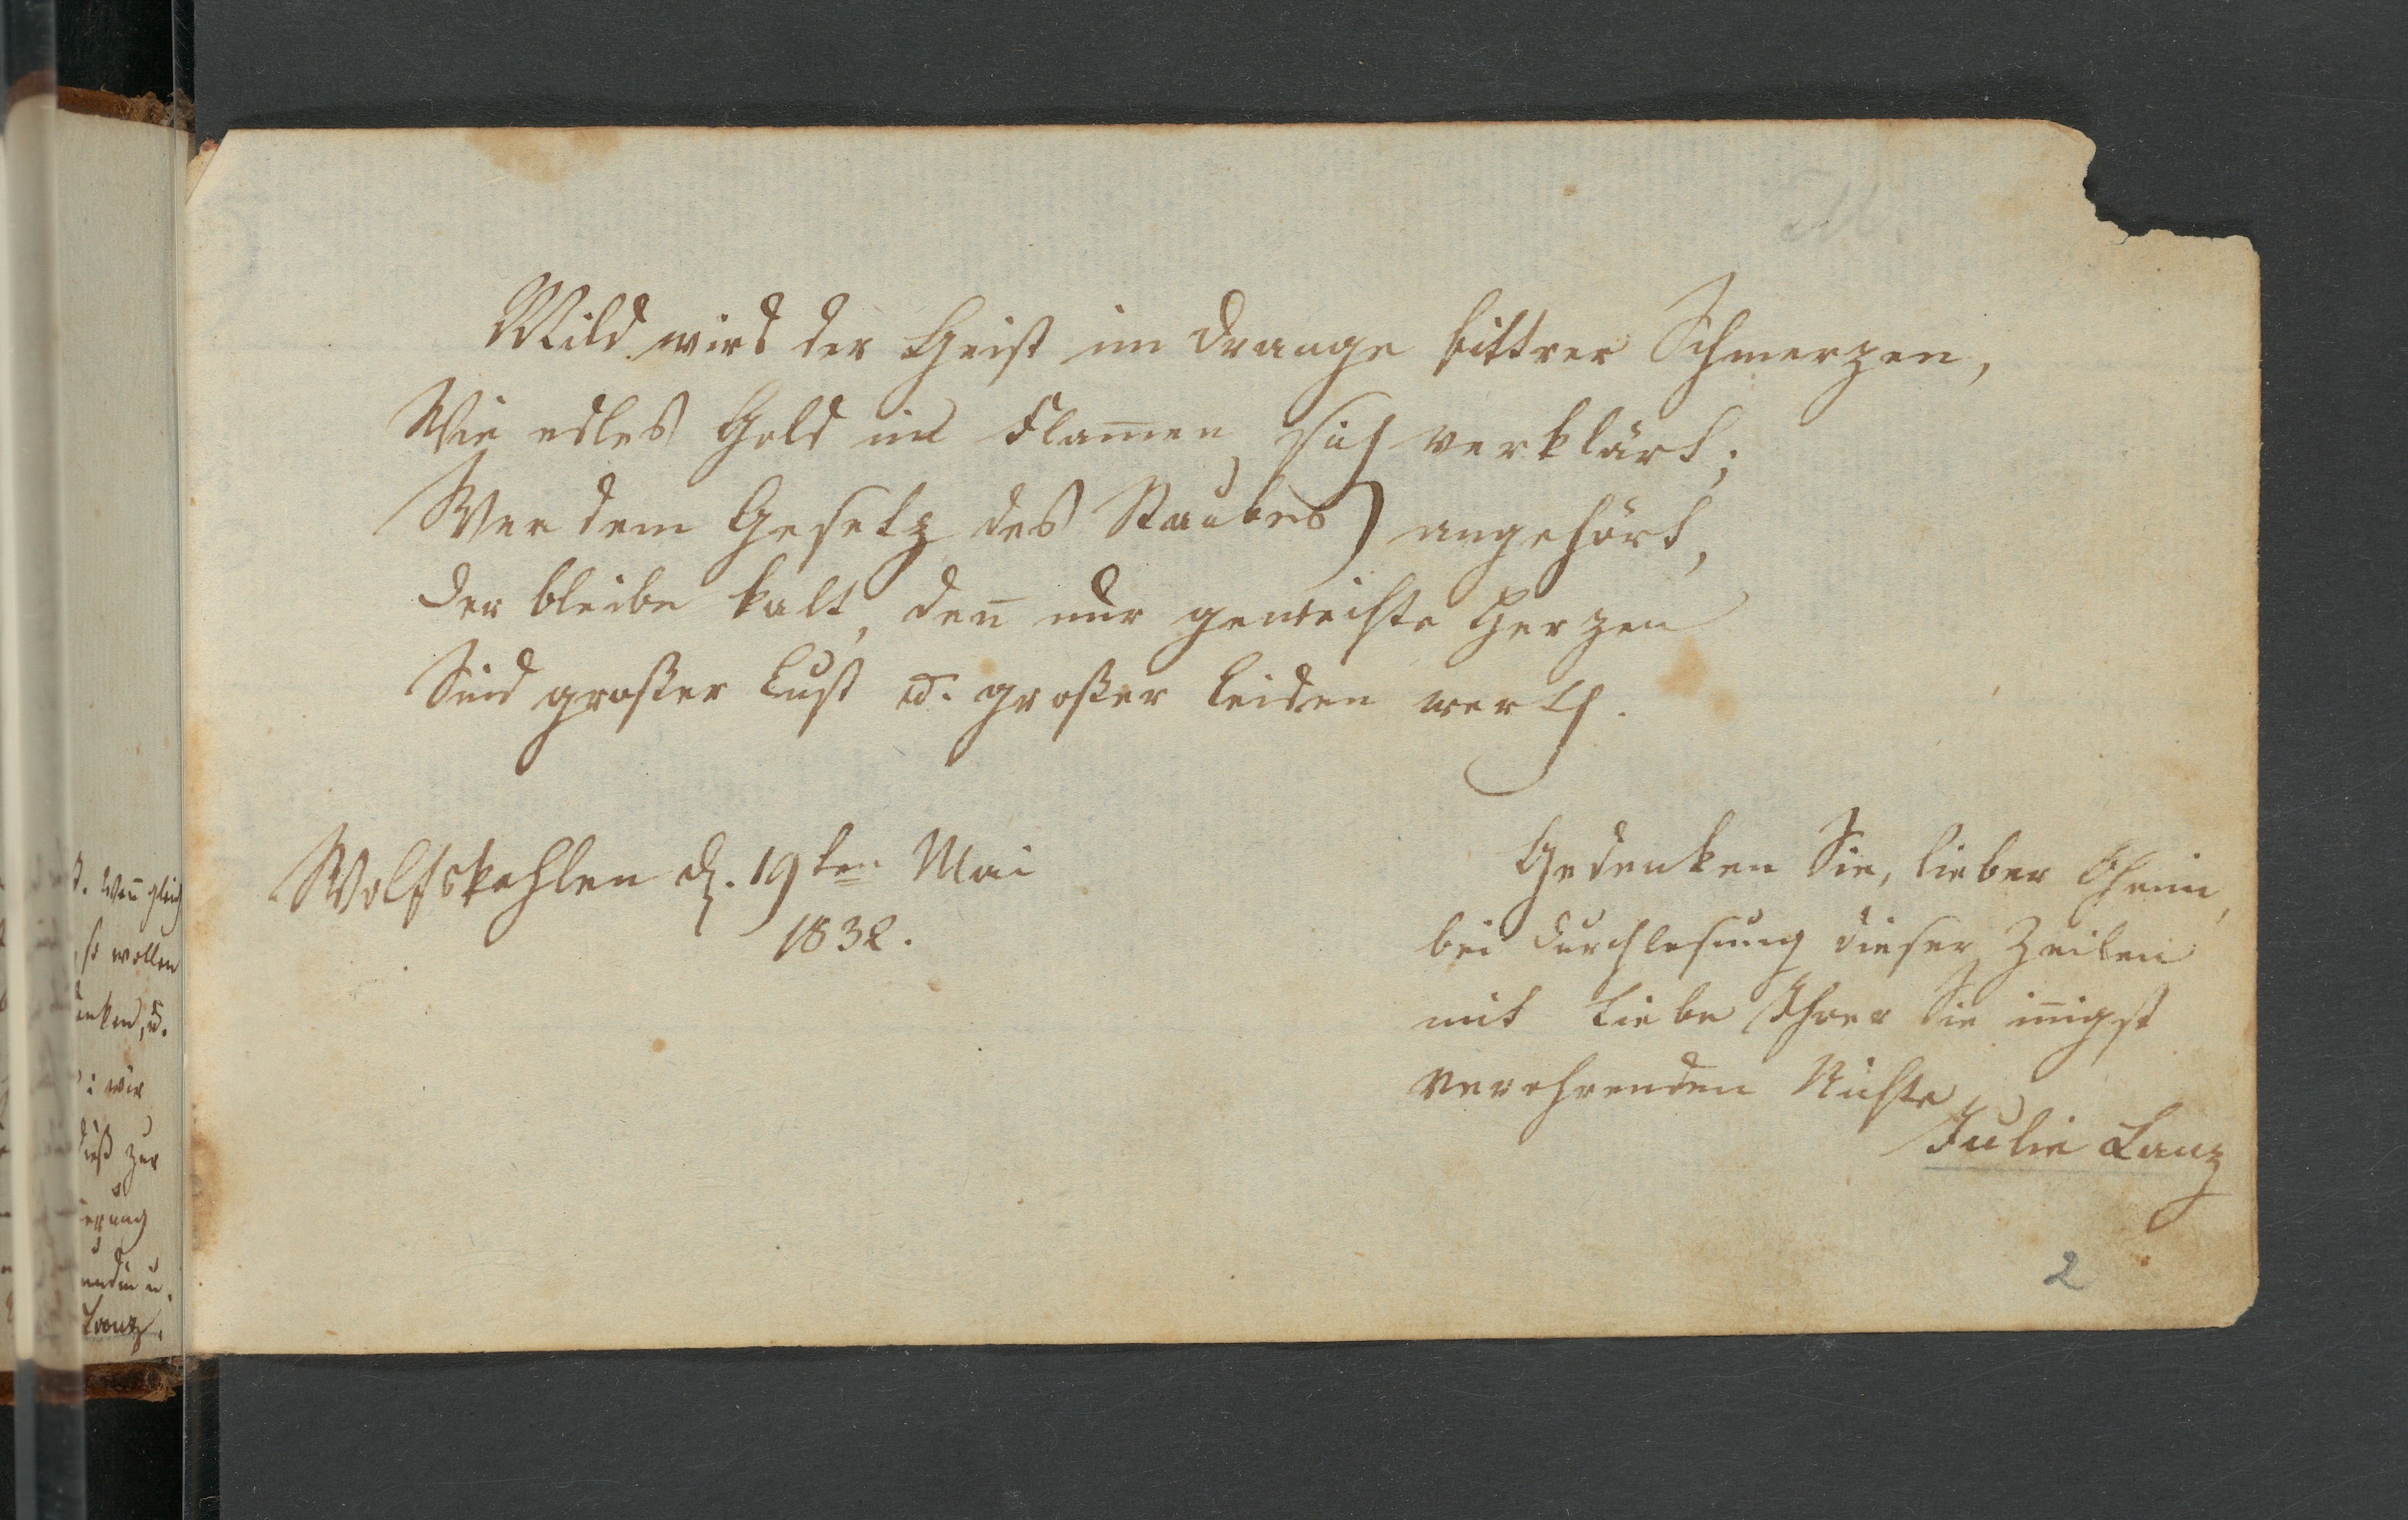 Mild wird der Geist im Drange bittrer Schmerzen,
Wie edles Gold in Flam̅en sich verklärt;
Wer dem Gesetz des Staubes angehört,
Der bleibe kalt, den̅ nur geweihte Herzen
Sind großer Lust u. großer Leiden werth.
Wolfskehlen d. 19ten Mai
1832.
Gedenken Sie, lieber Oheim,
bei Durchlesung dieser Zeilen
mit Liebe Ihrer Sie in̅igst
verehrenden Nichte
Julie Lanz
2
Wen̅ gleich
so wollen
u.
wir
zur
Lanz.